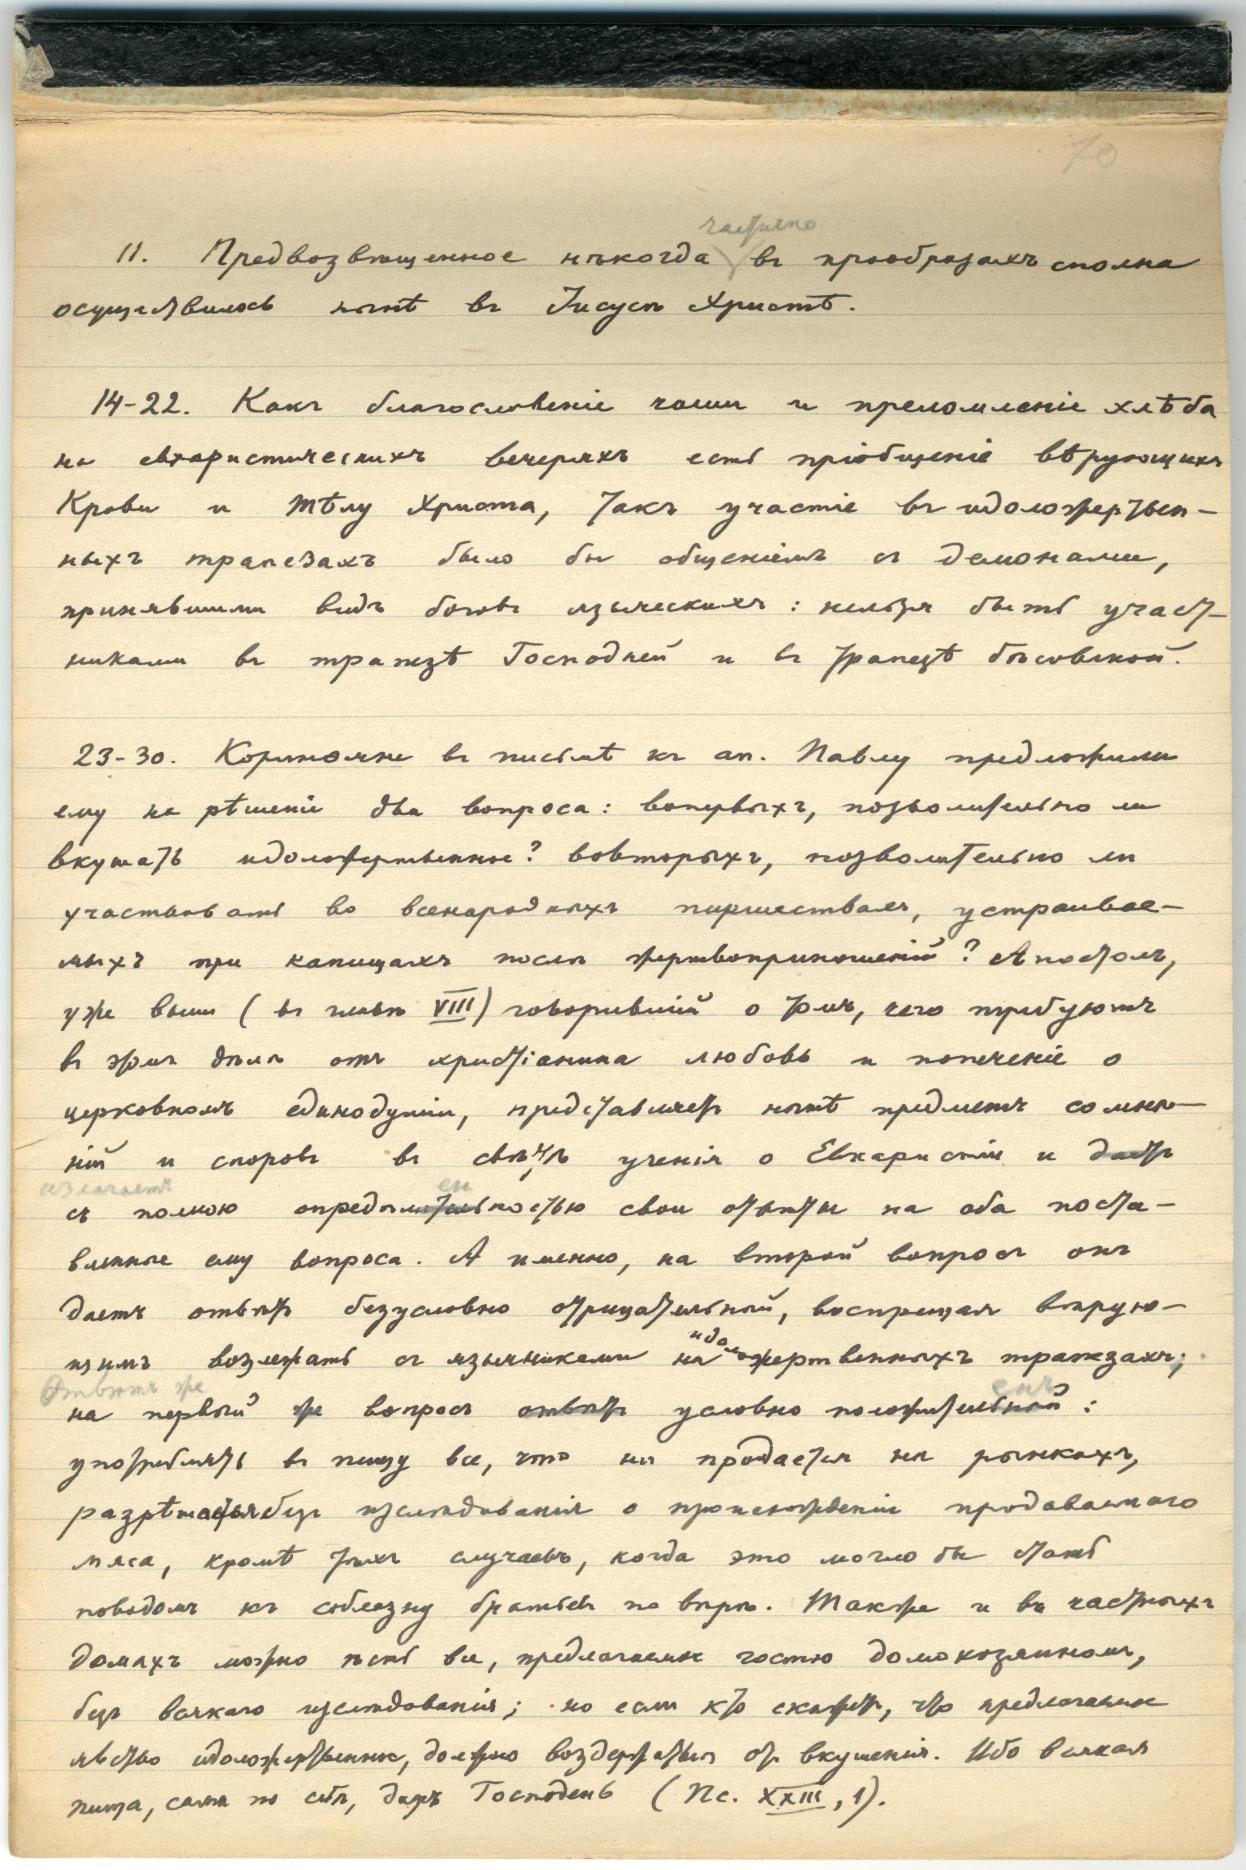 70
частично
11. Предвозвѣщенное нѣкогда въ прообразахъ сполна
осуществилось нынѣ въ Іисусѣ Христѣ.
14-22. Какъ благословеніе чаши и преломленіе хлѣба
на евхаристическихъ вечеряхъ есть пріобщеніе вѣрующихъ
Крови и Тѣлу Христа, такъ участіе въ идоложертвен-
ныхъ трапезахъ было бы общеніемъ съ демонами,
принявшими видъ боговъ языческихъ: нельзя быть участ-
никами въ трапезѣ Господней и въ трапезѣ бѣсовской.
23-30. Коринѳяне въ письмѣ къ ап. Павлу предложили
ему на рѣшеніе два вопроса: вопервыхъ, позволительно ли
вкушать идоложертвенное? вовторыхъ, позволительно ли
участвовать во всенародныхъ пиршествахъ, устраивае-
мыхъ при капищахъ послѣ жертвоприношеній? Апостолъ,
уже выше (въ главѣ VIII) говорившій о томъ, чего требуютъ
въ этомъ дѣлѣ отъ христіанина любовь и попеченіе о
церковномъ единодушіи, представляетъ нынѣ предметъ сомнѣ-
ній и споровъ въ свѣтѣ ученія о Евхаристіи и даетъ
излагаетъ ен
съ полною опредѣлительностью свои отвѣты на оба поста-
вленные ему вопроса. А именно, на второй вопросъ онъ
даетъ отвѣтъ безусловно отрицательный, воспрещая вѣрую-
щимъ возлежать съ язычниками на идоложертвенныхъ трапезахъ;
Отвѣтъ же енъ
на первый же вопросъ отвѣтъ условно положительный:
употреблять въ пищу все, что ни продается на рынкахъ,
разрѣшается безъ изслѣдованія о происхожденіи продаваемаго
мяса, кромѣ тѣхъ случаевъ, когда это могло бы стать
поводомъ къ соблазну братьевъ по вѣрѣ. Также и въ частныхъ
домахъ можно ѣсть все, предлагаемое гостю домохозяиномъ,
безъ всякаго изслѣдованія; но если кто скажетъ, что предлагаемое
яство идоложертвенное, должно воздержаться отъ вкушенія. Ибо всякая
пища, сама по себѣ, даръ Господень (Пс. XXIII, 1).